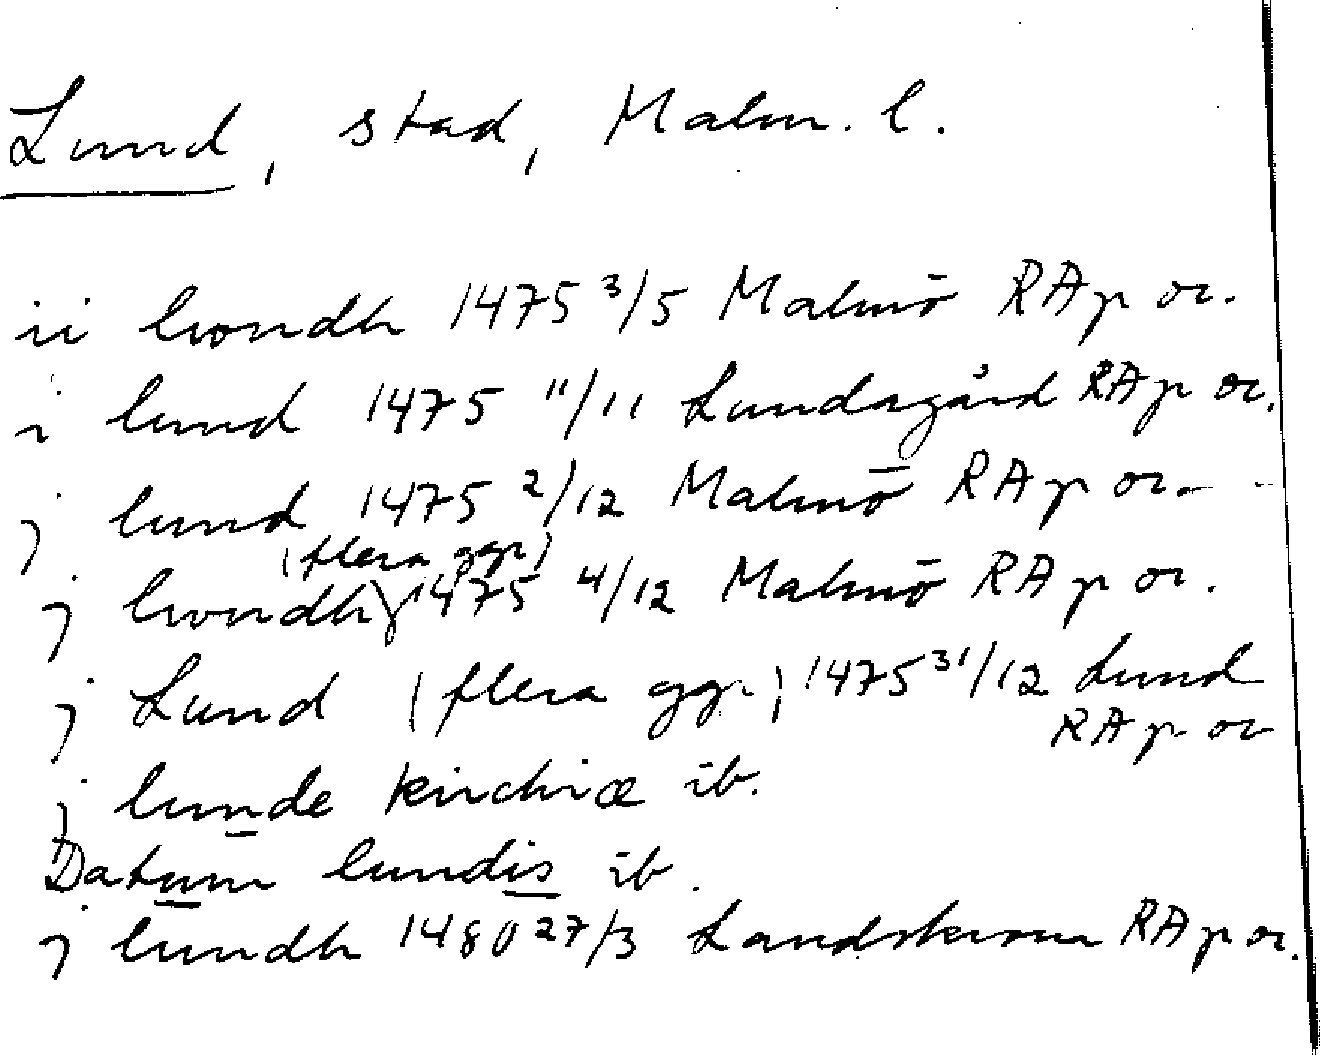 Lund, stad, Malm. l.
ii lwndh 1475 3/5 Malmö RAp or.
i lund 1475 11/11 Lundagård RAp or.
j lund 1475 2/12 Malmö RAp or.
(flera ggr)
j lwndh 1475 4/12 Malmö RAp or.
j Lund (flera ggr) 1475 31/12 Lund
RAp or
j lunde kirchiæ ib.
Datum lundis ib.
j lundh 1480 27/3 Landskrona RAp or.